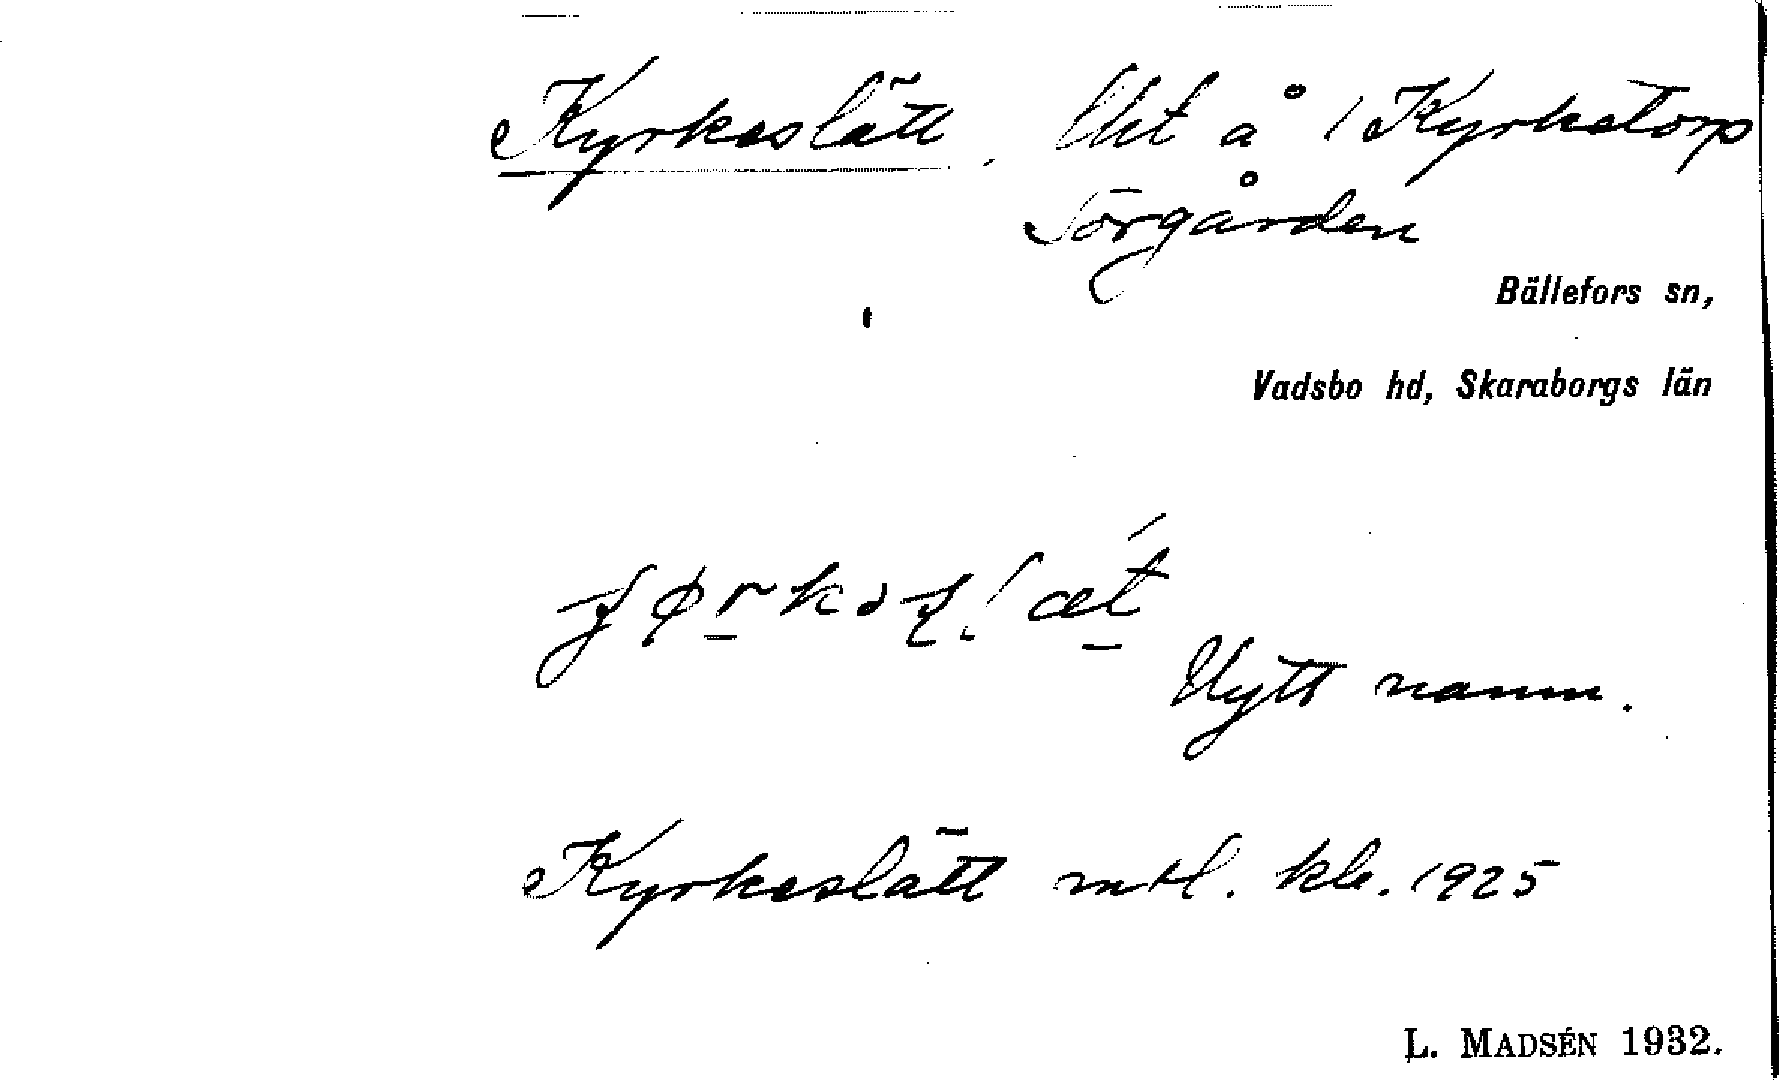 Kyrkeslätt. Uht å 1 Kyrketorp
Sörgården
Bällefors sn,
Vadsbo hd, Skaraborgs län
Nytt namn.
Kyrkeslätt mtl. kle. 1925
L. MADSÉN 1932.